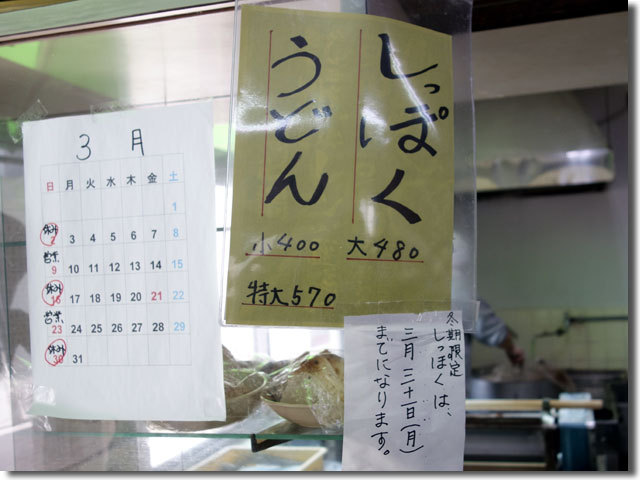 3月
日 月 火 水 木 金 土
1
休み 2 3 4 5 6 7 8
営業 9 10 11 12 13 14 15
休み 16 17 18 19 20 21 22
営業 23 24 25 26 27 28 29
休み 30 31
しっぽく
うどん
小400 大480
特大570
冬期限定
しっぽくは、
三月三十一日(月)
までになります。